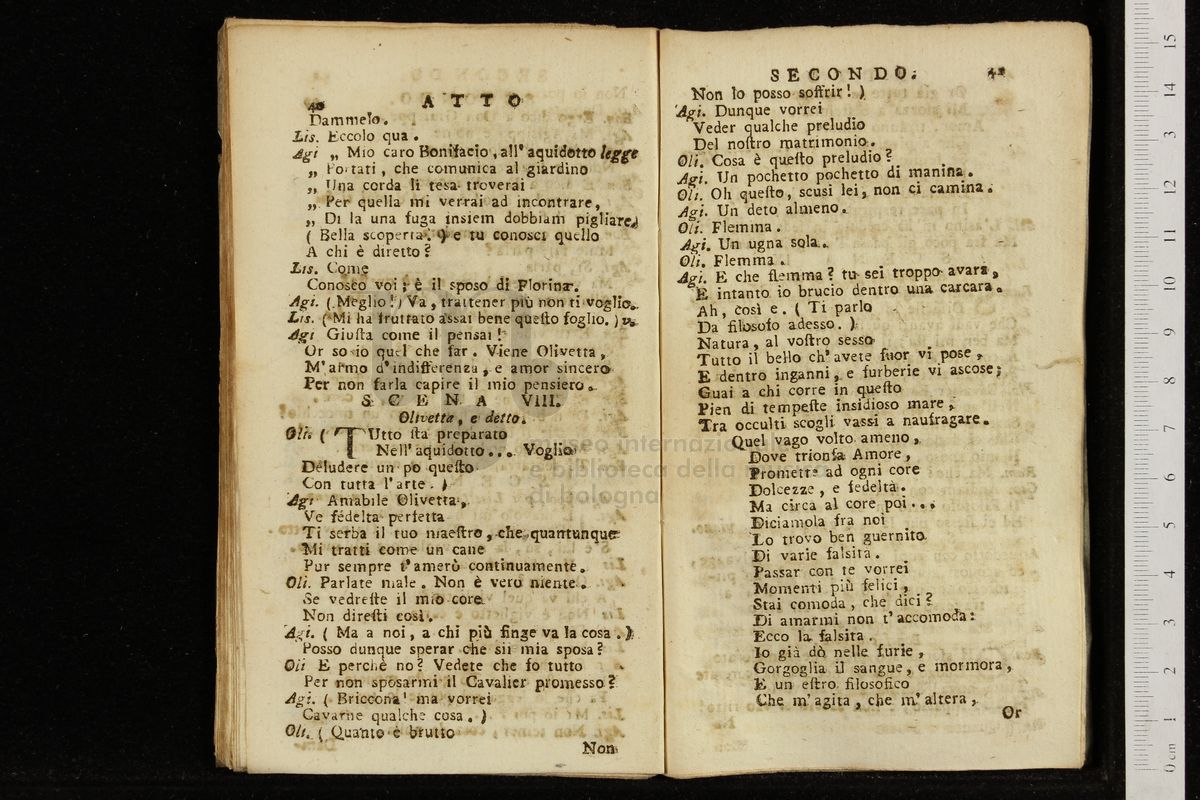 40
ATTO
Dammelo.
Lis. Eccolo qua.
Agi „ Mio caro Bonifacio, all' aquidotto legge
„ Portati, che comunica al giardino
„ Una corda li tesa troverai
„ Per quella mi verrai ad incontrare,
„ Di la una fuga insiem dobbiam pigliare,
( Bella scoperta. ) e tu conosci quello
A chi è diretto?
Lis. Come
Conosco voi; è il sposo di Florina.
Agi. ( Meglio! ) Va, trattener più non ti voglio.
Lis. ( Mi ha fruttato assai bene queſto foglio. ) v.
Agi Giuſta come il pensai!
Or so io quel che far. Viene Olivetta,
M' armo d' indifferenza, e amor sincero
Per non farla capire il mio pensiero.
SCENA VIII.
Olivetta, e detto.
Oli. ( TUtto ſta preparato
Nell' aquidotto... Voglio
Deludere un po queſto
Con tutta l' arte. )
Agi Amabile Olivetta,
Ve fedelta perfetta
Ti serba il tuo maeſtro, che quantunque
Mi tratti come un cane
Pur sempre t' amerò continuamente.
Oli. Parlate male. Non è vero niente.
Se vedreſte il mio core
Non direſti così.
Agi. ( Ma a noi, a chi più finge va la cosa. )
Posso dunque sperar che sii mia sposa?
Oli E perchè no? Vedete che fo tutto
Per non sposarmi il Cavalier promesso?
Agi. ( Briccona! ma vorrei
Cavarne qualche cosa. )
Oli. ( Quanto è brutto
Non
SECONDO.
41
Non lo posso soffrir! )
Agi. Dunque vorrei
Veder qualche preludio
Del noſtro matrimonio.
Oli. Cosa è queſto preludio?
Agi. Un pochetto pochetto di manina.
Oli. Oh queſto, scusi lei, non ci camina.
Agi. Un deto almeno.
Oli. Flemma.
Agi. Un ugna sola.
Oli. Flemma.
Agi. E che flemma? tu sei troppo avara,
E intanto io brucio dentro una carcara.
Ah, così e. ( Ti parlo
Da filosofo adesso. )
Natura, al voſtro sesso
Tutto il bello ch' avete fuor vi pose,
E dentro inganni, e furberie vi ascose;
Guai a chi corre in queſto
Pien di tempeſte insidioso mare,
Tra occulti scogli vassi a naufragare.
Quel vago volto ameno,
Dove trionfa Amore,
Promette ad ogni core
Dolcezze, e fedeltà.
Ma circa al core poi...
Diciamola fra noi
Lo trovo ben guernito
Di varie falsita.
Passar con te vorrei
Momenti più felici,
Stai comoda, che dici?
Di amarmi non t' accomoda:
Ecco la falsita.
Io già dò nelle furie,
Gorgoglia il sangue, e mormora,
E un eſtro filosofico
Che m' agita, che m' altera,
Or
museo internazionale
e biblioteca della musica
di bologna
0 cm 1 2 3 4 5 6 7 8 9 10 11 12 13 14 15